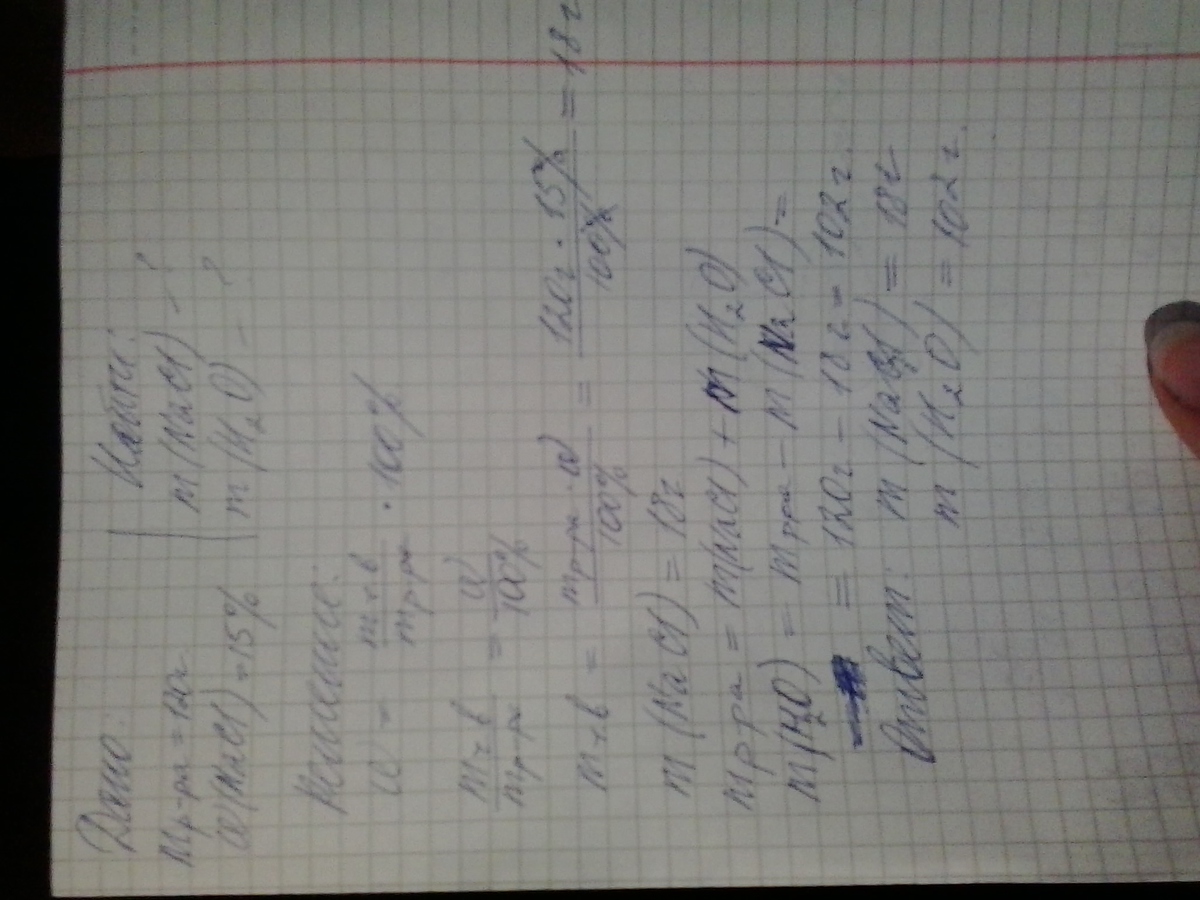 Дано: Найти:
mр-ра = 120г m(NaCl) - ?
ω(NaCl) = 15% m(H₂O) - ?
Решение:
ω = m г.в / m р-ра · 100%
m г.в / m р-ра = ω / 100%
m г.в = m р-ра · ω / 100% = 120г · 15% / 100% = 18г
m(NaCl) = 18г
m р-ра = m(NaCl) + m(H₂O)
m(H₂O) = m р-ра - m(NaCl) =
= 120г - 18г = 102г.
Ответ: m(NaCl) = 18г
m(H₂O) = 102г.